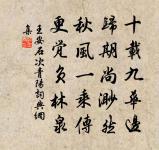 十載九華邊
歸期尚渺然
秋風一乘傳
更覺負林泉
王安石次青陽詞典網
集